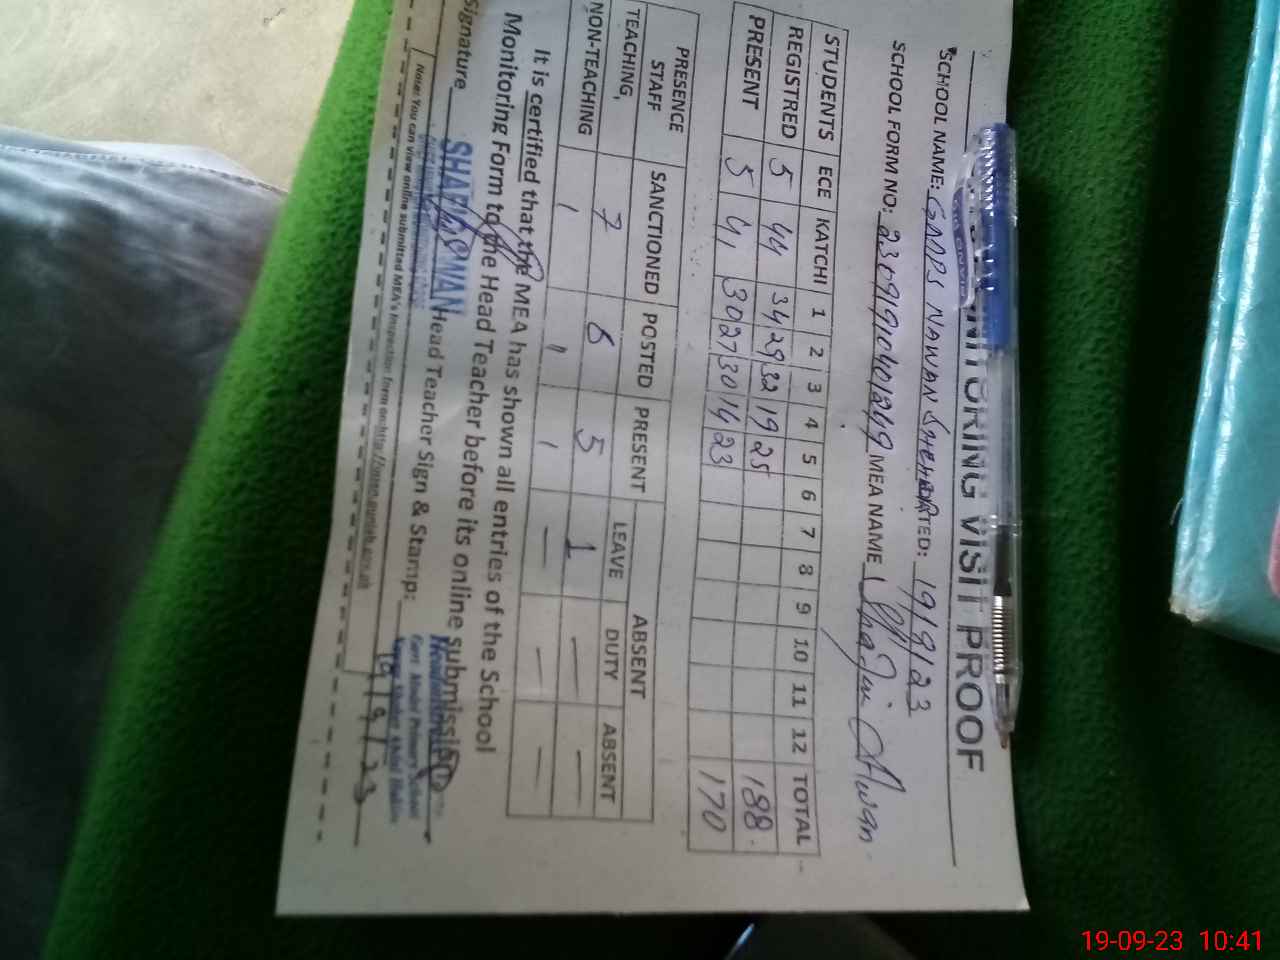 MONITORING VISIT PROOF
SCHOOL NAME: GMMPS NAWAN SHEHR DATED: 19/9/23
SCHOOL FORM NO: 23091910401249 MEA NAME Shafiu Awan
STUDENTS ECE KATCHI 1 2 3 4 5 6 7 8 9 10 11 12 TOTAL
REGISTRED 5 44 34 29 32 19 25 188
PRESENT 5 41 30 27 30 14 23 170
PRESENCE STAFF SANCTIONED POSTED PRESENT ABSENT
LEAVE DUTY ABSENT
TEACHING, 7 6 5 1 — —
NON-TEACHING 1 1 1 — — —
It is certified that the MEA has shown all entries of the School
Monitoring Form to the Head Teacher before its online submission
Signature Head Teacher Sign & Stamp:
Govt. Model Primary School
19/9/23
Note: You can view online submitted MEA's Inspection form on:
19-09-23 10:41